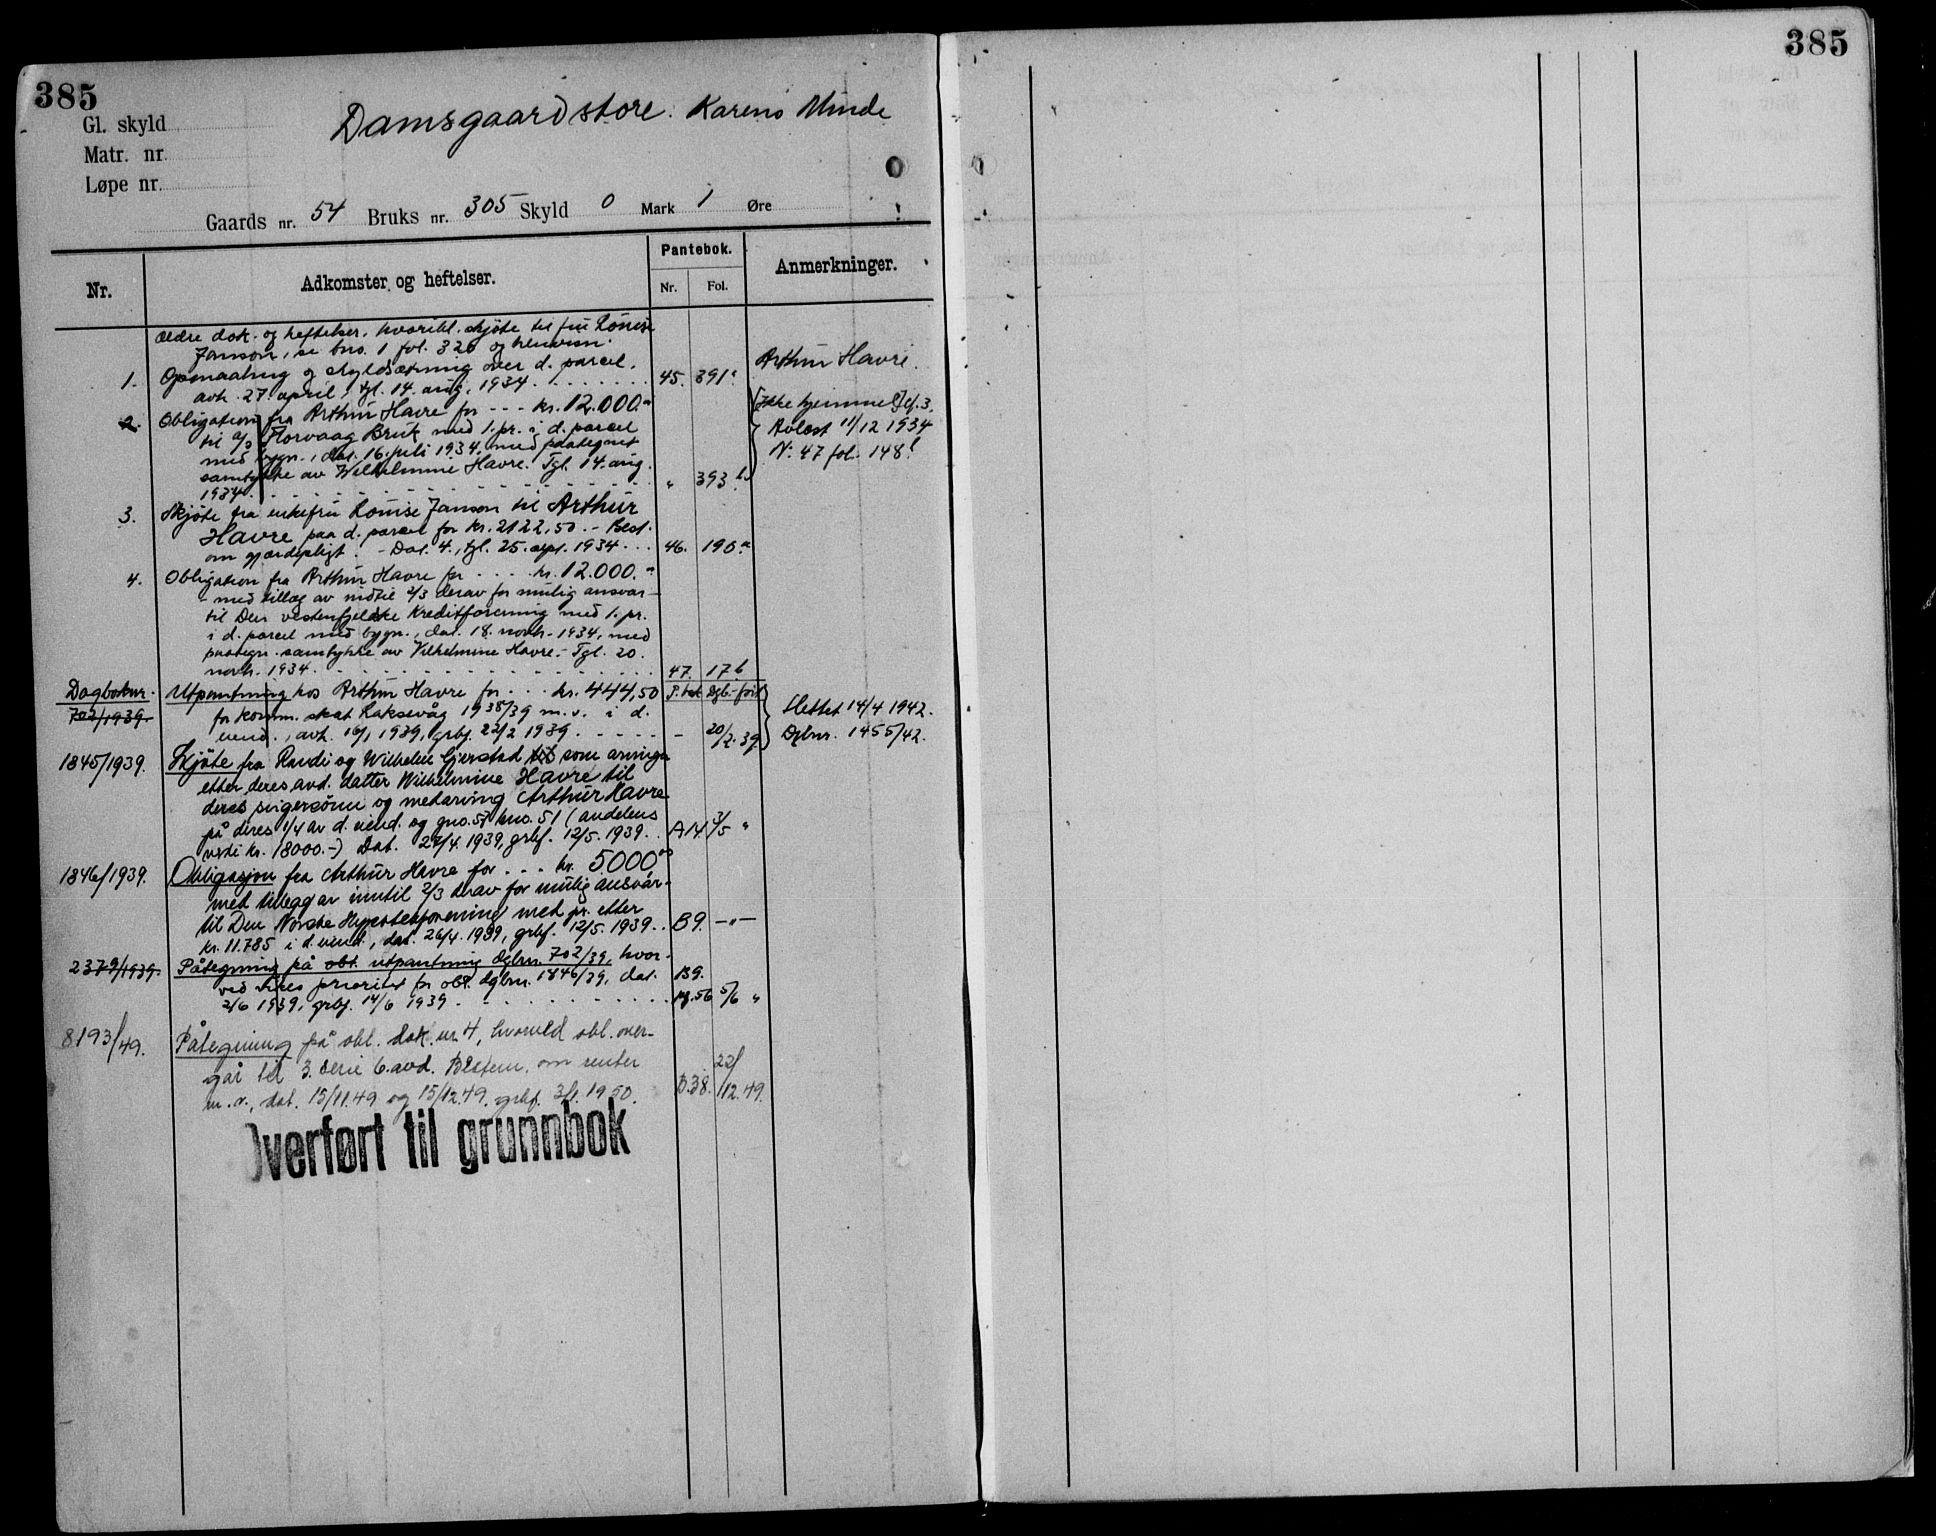 385
385
Gl. skyld
Damsgaard store. Karens Minde
Matr. nr.
Løpe nr.
Gaards nr. 54 Bruks nr. 305 Skyld 0 Mark 1 Øre
Nr.
Adkomster og heftelser.
Pantebok.
Nr. Fol.
Anmerkninger.
Ældre dok. og heftelser, hvoribl. skjøte til fru Louise
Janson, se bno. 1 fol. 326 og henvisn.
Arthur Havre.
1. Opmaaling og skyldsætning over d. parcel,
avh. 27. april, tgl. 14. aug. 1934 45. 391a
2. Obligation fra Arthur Havre for --- kr. 12.000.-
til a/s Florvaag Bruk med 1. pr. i d. parcel
med bygn., dat. 16. juli 1934, med paategnet
samtykke av Wilhelmine Havre. Tgl. 14. aug.
1934 " 393b
[Ikke hjemmel] cf. 3.
Avlæst 11/12 1934
N: 47 fol. 148b
3. Skjøte fra enkefru Louise Janson til Arthur
Havre paa d. parcel for kr. 2122,50. - Best.
om gjerdepligt. - Dat. 4., tgl. 25. sept. 1934 46. 190a
4. Obligation fra Arthur Havre for kr. 12.000.-
- med tillæg av indtil 2/3 derav for mulig ansvar -
til Den vestenfjeldske Kreditforening med 1. pr.
i d. parcel med bygn., dat. 18. novb. 1934, med
paategn. samtykke av Vilhelmine Havre. - Tgl. 20.
novb. 1934 47. 17b
Dagboknr. Utpantning hos Arthur Havre for kr. 444,50 P.bok Dgb.-ført
702/1939. for komm. skat Laksevåg 1938/39 m.v. i d.
eiend., avh. 16/1 1939, grbf. 22/2 1939 - 20/2.39
Slettet 14/4 1942.
Dgbnr. 1455/42.
1845/1939. Skjøte fra Randi og Wilhelm Gjerstad som arvinger
etter deres avd. datter Wilhelmine Havre til
deres svigersønn og medarving Arthur Havre
på deres 1/4 av d. eiend. og gno. 57 bno. 51 (andelens
verdi kr. 18000.-) Dat. 27/4. 1939, grbf. 12/5. 1939. A14 3/5 "
1846/1939. Obligasjon fra Arthur Havre for kr. 5000.00
med tillegg av inntil 2/3 derav for mulig ansvar -
til Den Norske Hypotekforening med pr. etter
kr. 11.785 i d. eiend., dat. 26/4. 1939, grbf. 12/5. 1939. B9. - " -
2379/1939. Påtegning på obl. utpantning dgbnr. 702/39, hvor-
ved vikes prioritet for obl. dgbnr. 1846/39, dat. B9.
2/6 1939, grbf. 14/6 1939 pg. 56 5/6 "
8193/49. Påtegning på obl. dok. nr. 4, hvorved obl. over-
går til 3. serie 6. avd. Bestem. om renter
m.v., dat. 15/11.49 og 15/12.49, grbf. 3/1. 1950. B.38. 22/12.49.
Overført til grunnbok